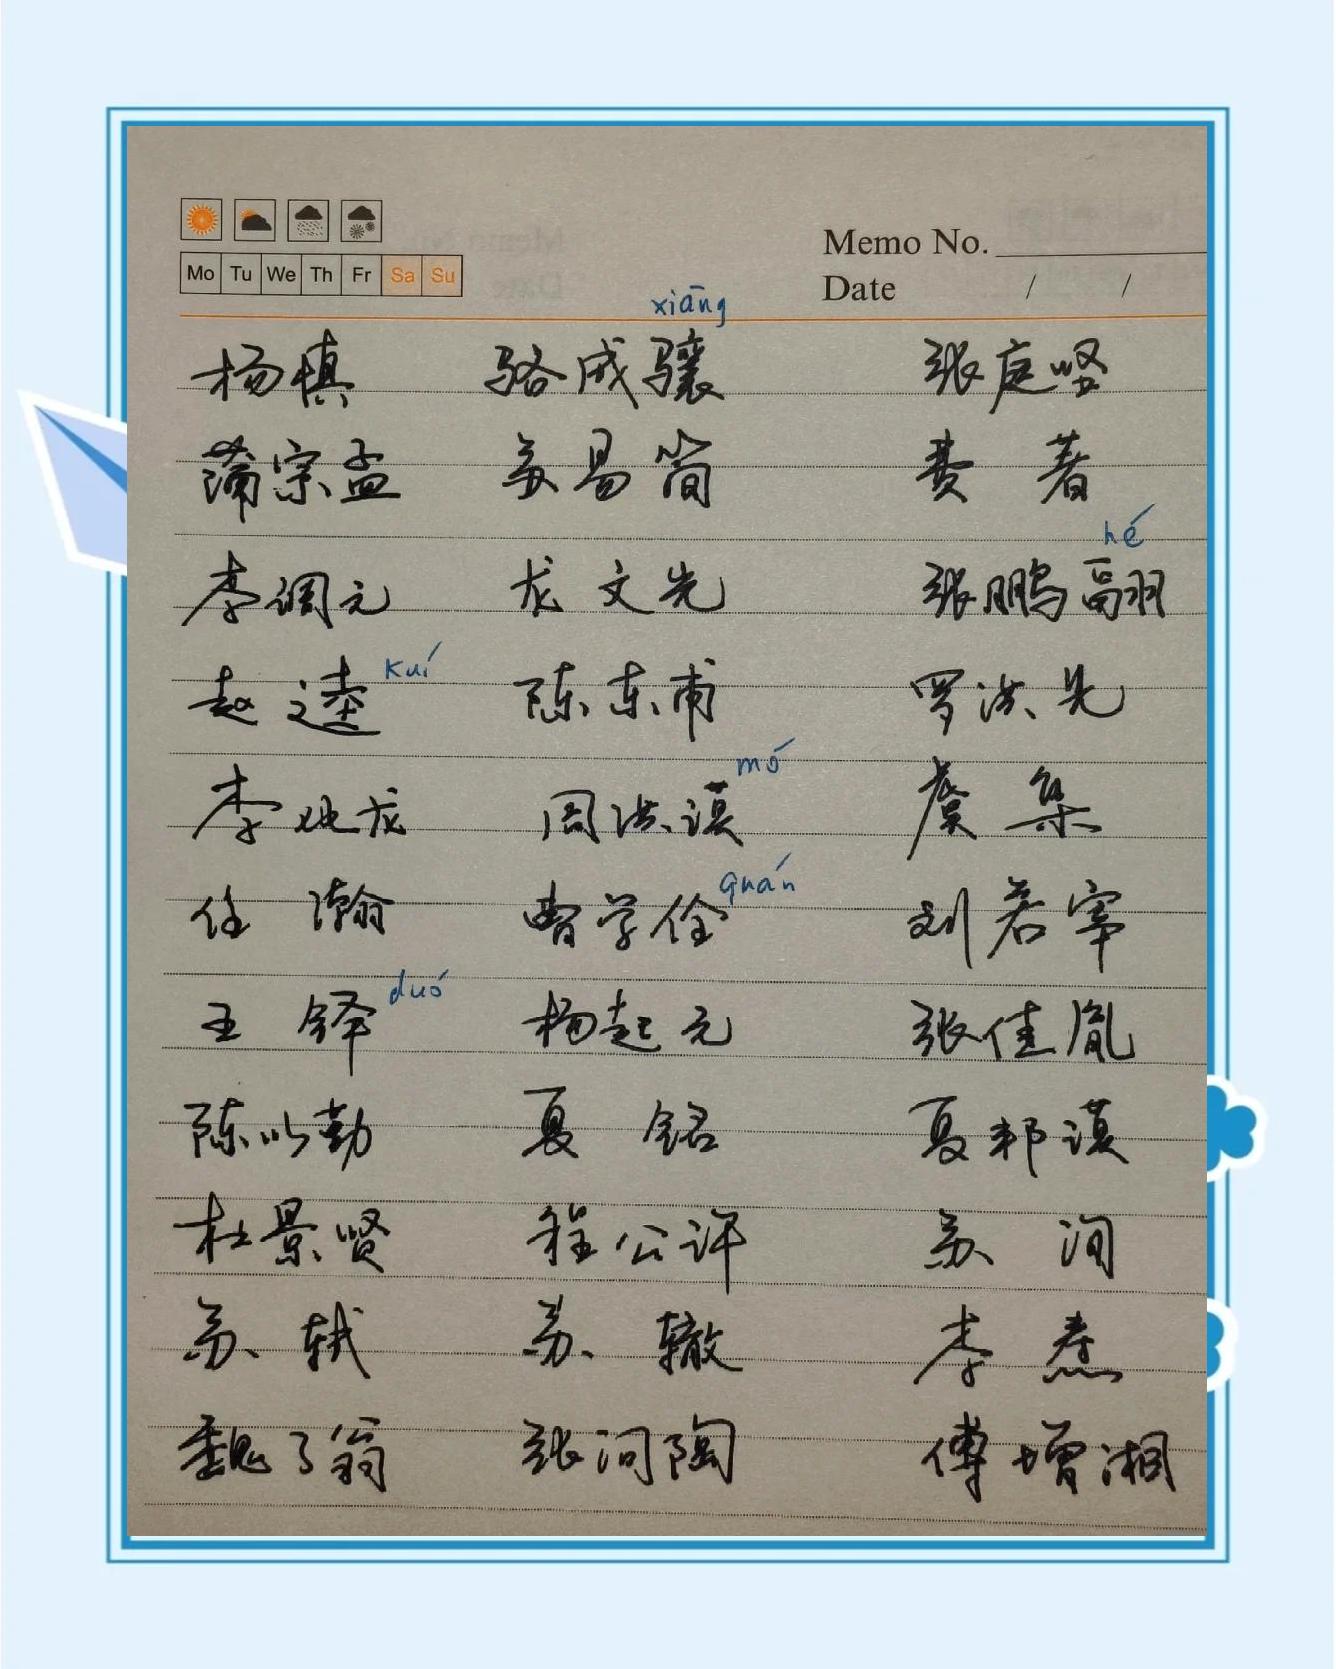 Memo No.
Mo Tu We Th Fr Sa Su
Date / /
xiāng
杨慎 骆成骧 张庭坚
蒲宗孟 苏易简 费著
hé
李调元 龙文先 张鹏翮
kuí
赵逵 陈东甫 罗洪先
mó
李化龙 周洪谟 虞集
quán
任瀚 曹学佺 刘若宰
duó
王铎 杨起元 张佳胤
陈以勤 夏铭 夏邦谟
杜景贤 程公许 苏洵
苏轼 苏辙 李焘
魏了翁 张问陶 傅增湘